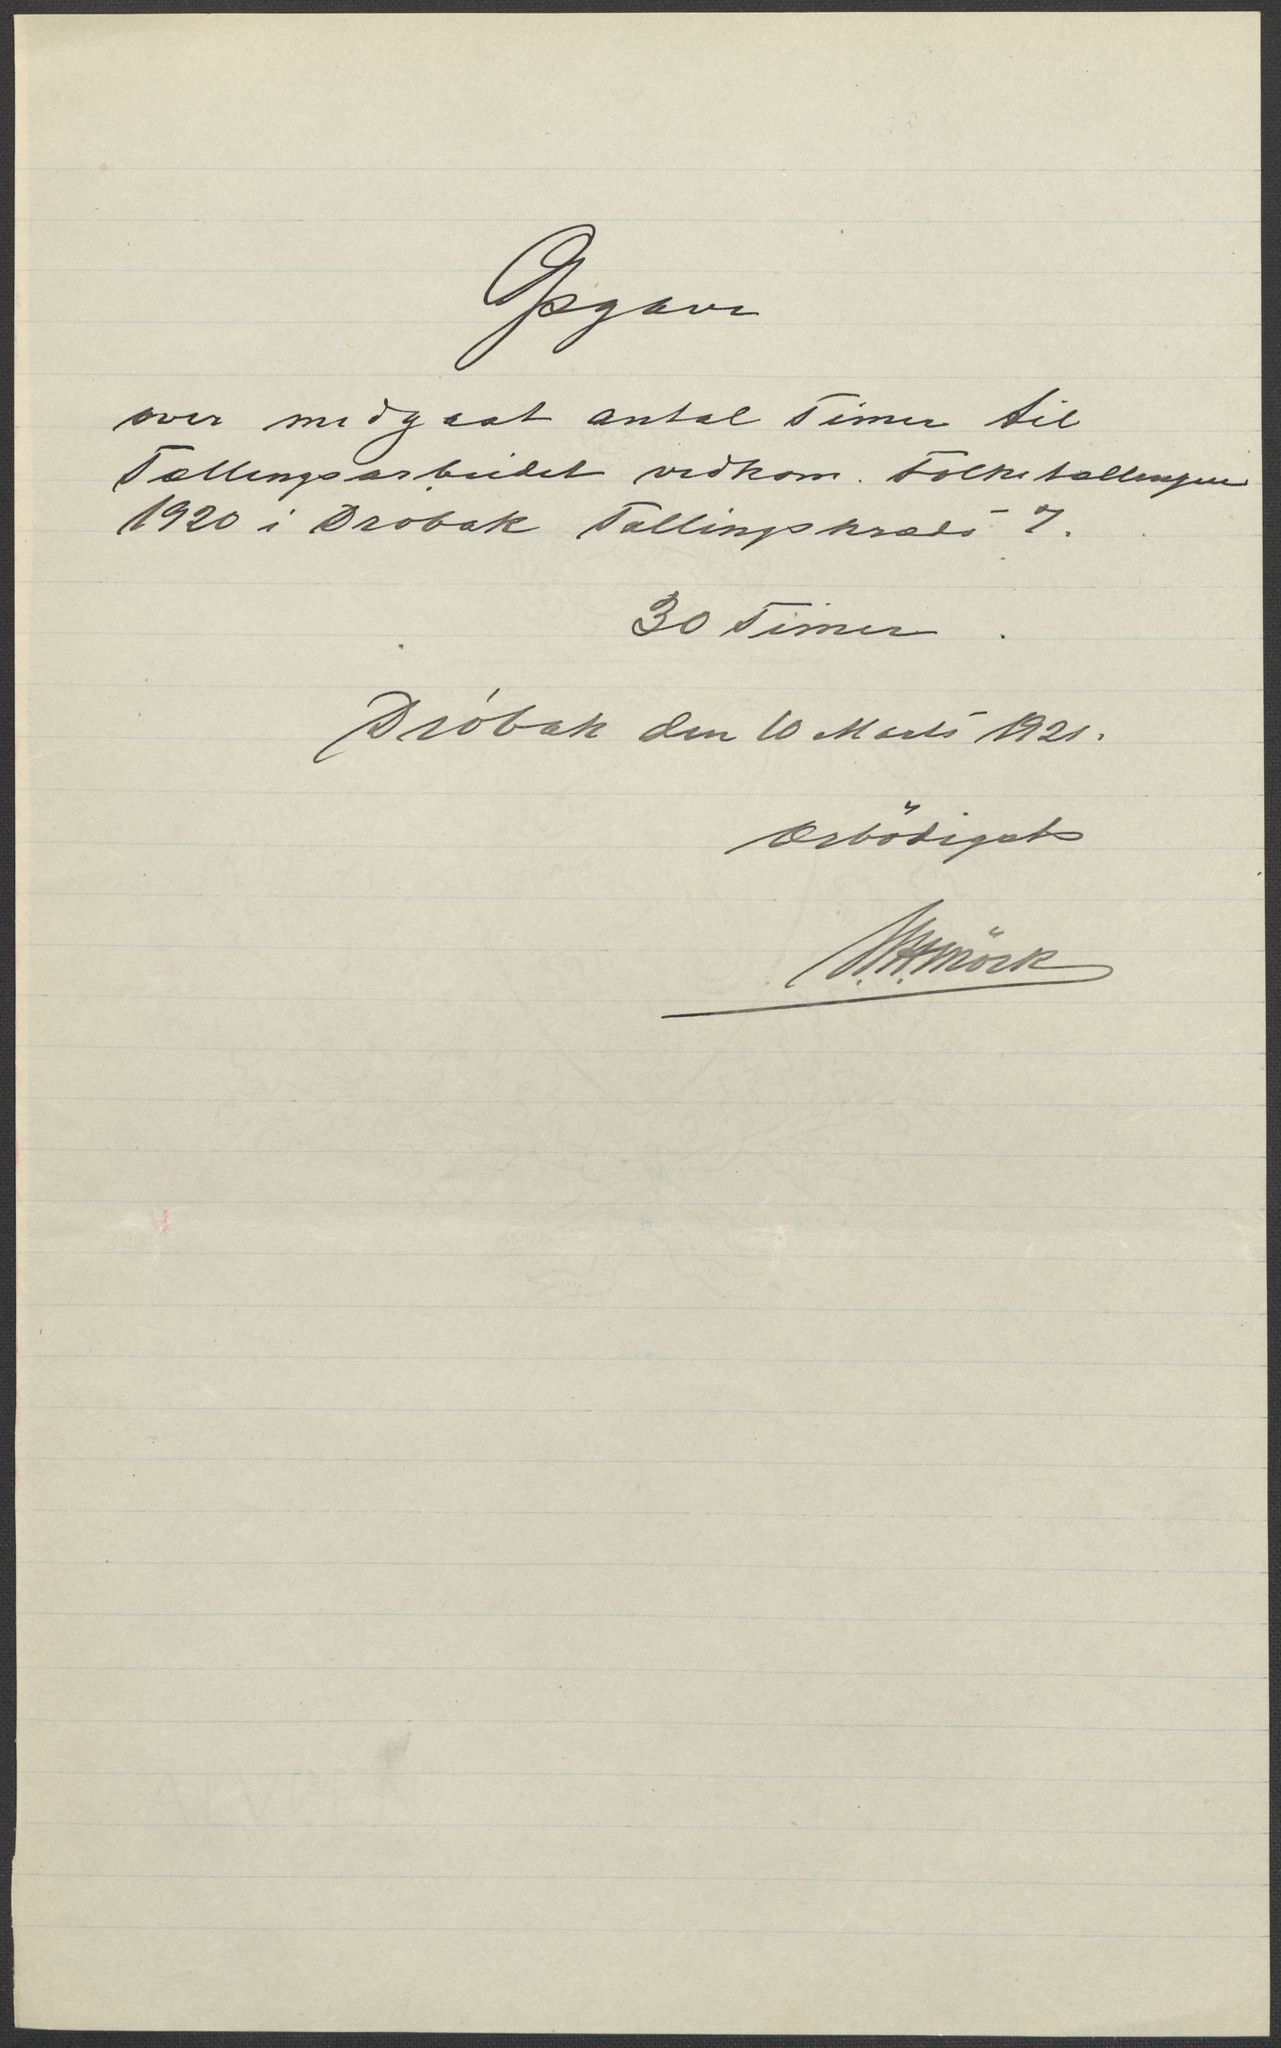 Opgave
over medgaat antal Timer til
Tællingsarbeidet vedkom. Folketællingen
1920 i Drøbak Tællingskreds 7.
30 Timer.
Drøbak den 10 Marts 1921.
Ærbödigst
Mörk